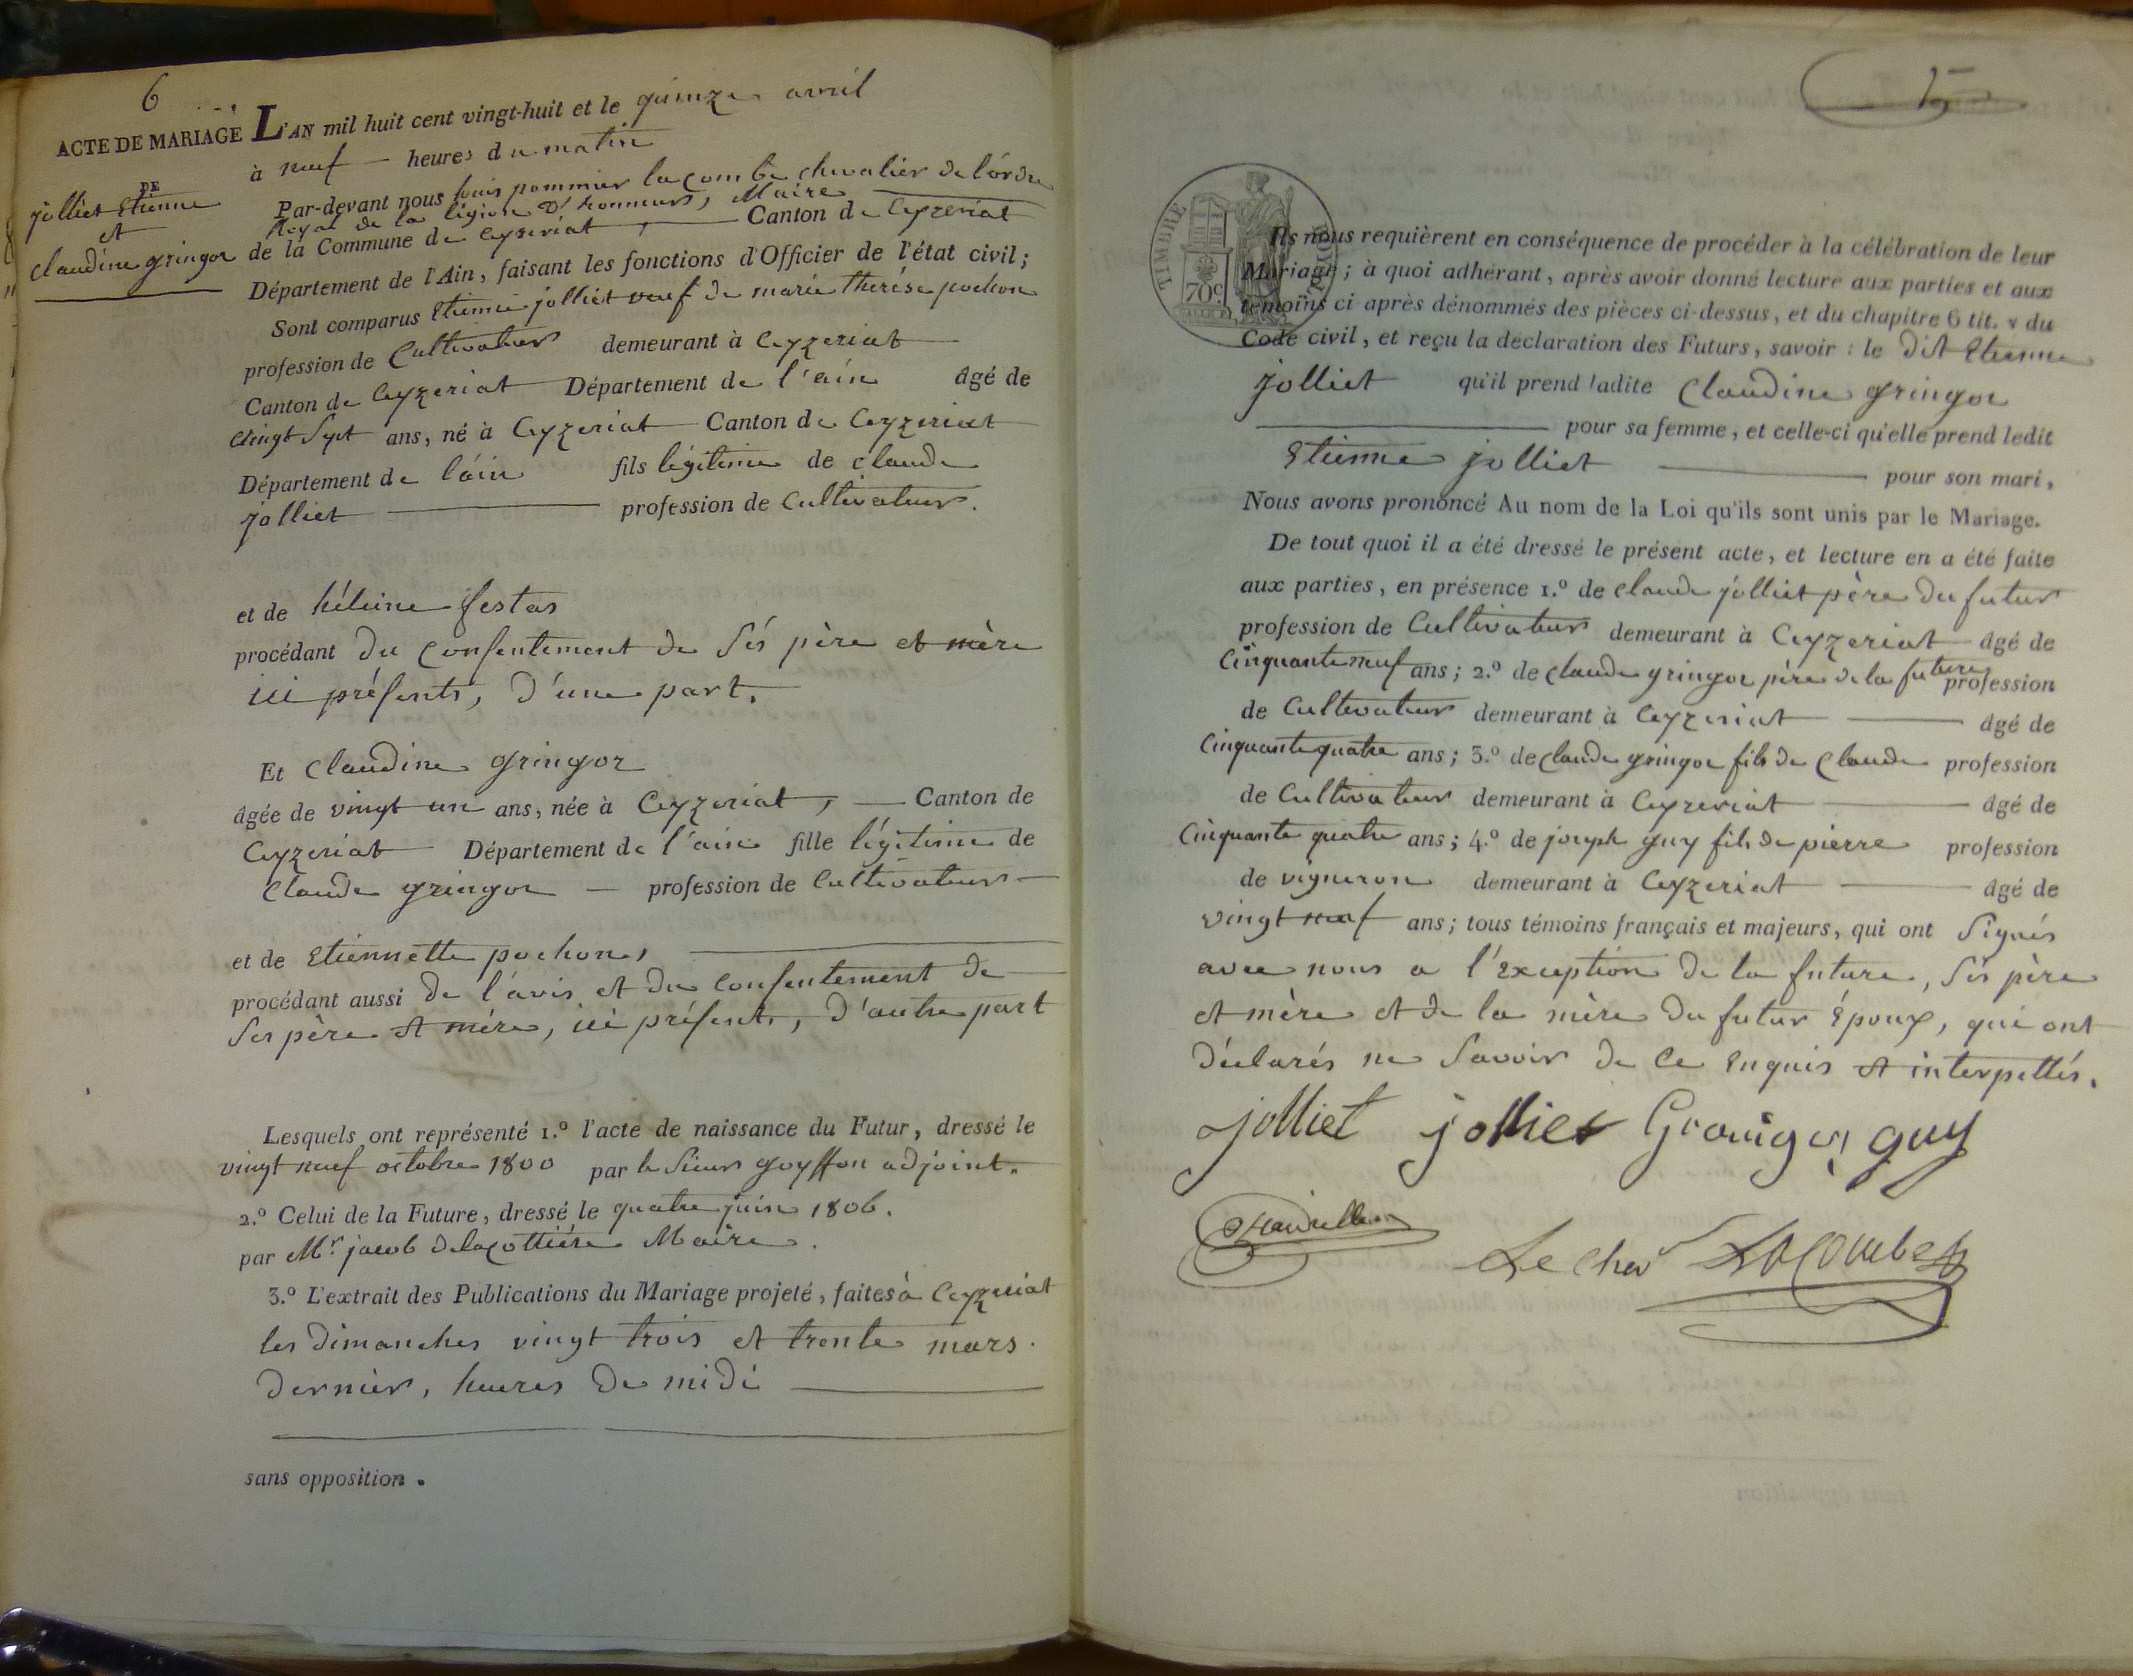 6
ACTE DE MARIAGE
DE
jolliet Etienne
et
claudine gringoz
L'AN mil huit cent vingt-huit et le quinze avril
à neuf heures du matin
Par-devant nous louis pommier lacombe chevalier de l'ordre
Royal de la légion d'honneur, Maire
de la Commune de Ceyzeriat, Canton de Ceyzeriat
Département de l'Ain, faisant les fonctions d'Officier de l'état civil;
Sont comparus Etienne jolliet veuf de marie therése pochon
profession de Cultivateur demeurant à Ceyzeriat
Canton de Ceyzeriat Département de l'ain âgé de
vingt Sept ans, né à Ceyzeriat Canton de Ceyzeriat
Département de l'ain fils légitime de claude
jolliet profession de Cultivateur.
et de héleine festas
procédant du consentement de Sés père et mère
ici présents, d'une part.
Et Claudine gringoz
âgée de vingt un ans, née à Ceyzeriat, Canton de
Ceyzeriat Département de l'ain fille légitime de
Claude gringoz profession de Cultivateur
et de Etiennette pochon,
procédant aussi de l'avis et du consentement de
Ses père et mére, ici présents, d'autre part
Lesquels ont représenté 1.º l'acte de naissance du Futur, dressé le
vingt neuf octobre 1800 par le Sieur goyffon adjoint.
2.º Celui de la Future, dressé le quatre juin 1806.
par Mr. jacob delacottiére Maire.
3.º L'extrait des Publications du Mariage projeté, faites à Ceyzeriat
les dimanches vingt trois et trente mars
dernier, heures de midi
sans opposition.
TIMBRE ROYAL
70c
Ils nous requièrent en conséquence de procéder à la célébration de leur
Mariage; à quoi adhérant, après avoir donné lecture aux parties et aux
témoins ci après dénommés des pièces ci-dessus, et du chapitre 6 tit. v du
Code civil, et reçu la déclaration des Futurs, savoir: le dit Etienne
jolliet qu'il prend ladite Claudine gringoz
pour sa femme, et celle-ci qu'elle prend ledit
Etienne jolliet pour son mari,
Nous avons prononcé Au nom de la Loi qu'ils sont unis par le Mariage.
De tout quoi il a été dressé le présent acte, et lecture en a été faite
aux parties, en présence 1.º de claude jolliet père du futur
profession de Cultivateur demeurant à Ceyzeriat âgé de
Cinquante neuf ans; 2.º de claude gringoz père de la future profession
de Cultivateur demeurant à Ceyzeriat âgé de
Cinquante quatre ans; 3.º de claude gringoz fils de Claude profession
de Cultivateur demeurant à Ceyzeriat âgé de
Cinquante quatre ans; 4.º de joseph guy fils de pierre profession
de vigneron demeurant à Ceyzeriat âgé de
vingt neuf ans; tous témoins français et majeurs, qui ont Signés
avec nous a l'Exception de la future, Sés père
et mère et de la mère du futur Époux, qui ont
déclarés ne Savoir de ce Enquis et interpellés.
jolliet jolliet guy
Le cher Lacombe